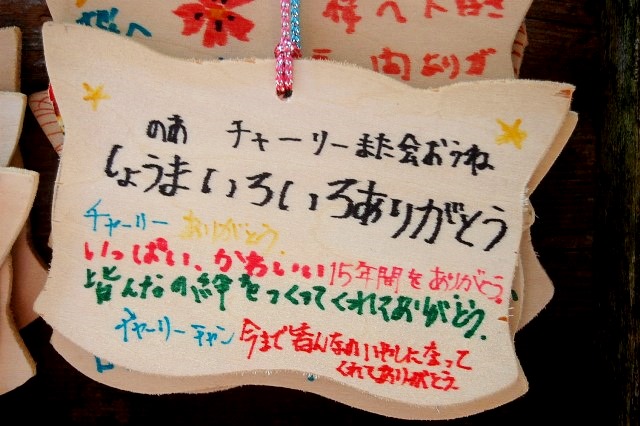 様へ
様へ
間よりが
のあ チャーリーまた会おうね
しょうまいろいろありがとう
チャーリー ありがとう
いっぱい、かわいい 15年間をありがとう。
皆んなの絆をつくってくれてありがとう。
チャーリーチャン 今まで皆んなのいやしになって
くれてありがとう。